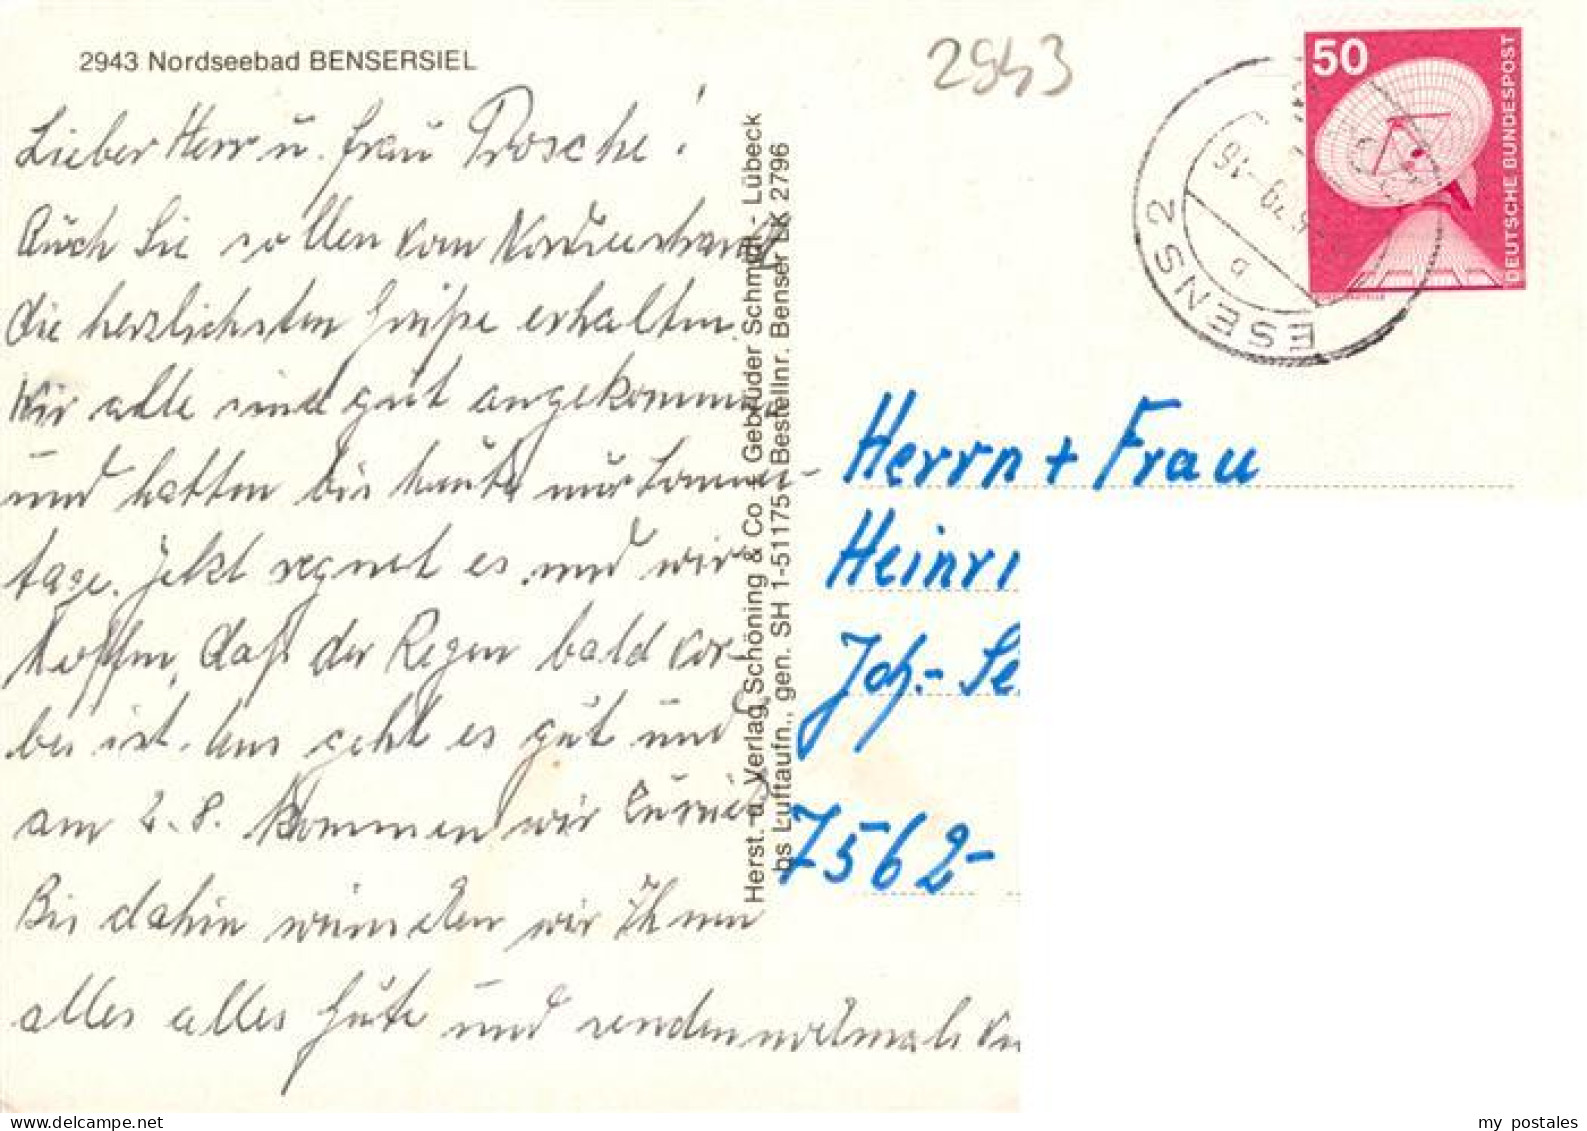 2943 Nordseebad BENSERSIEL
2943
50
DEUTSCHE BUNDESPOST
ESENS 2
Lieber Herr u. Frau Drosche!
Auch Sie sollen vom Nordseestrand
die herzlichsten Grüße erhalten.
Wir alle sind gut angekommen
und hatten bis heute nur Sonnen-
tage. Jetzt regnet es und wir
hoffen, daß der Regen bald vor-
bei ist. Uns geht es gut und
am 2.8. kommen wir zurück
Bis dahin wünschen wir Ihnen
alles alles Gute und senden nochmals
Herst. u. Verlag Schöning & Co + Gebrüder Schmidt - Lübeck
bs Luftaufn., gen. SH 1-51175 Bestellnr. Benser Lk 2796
Herrn + Frau
Heinri
Joh.- Se
7562-
my postales